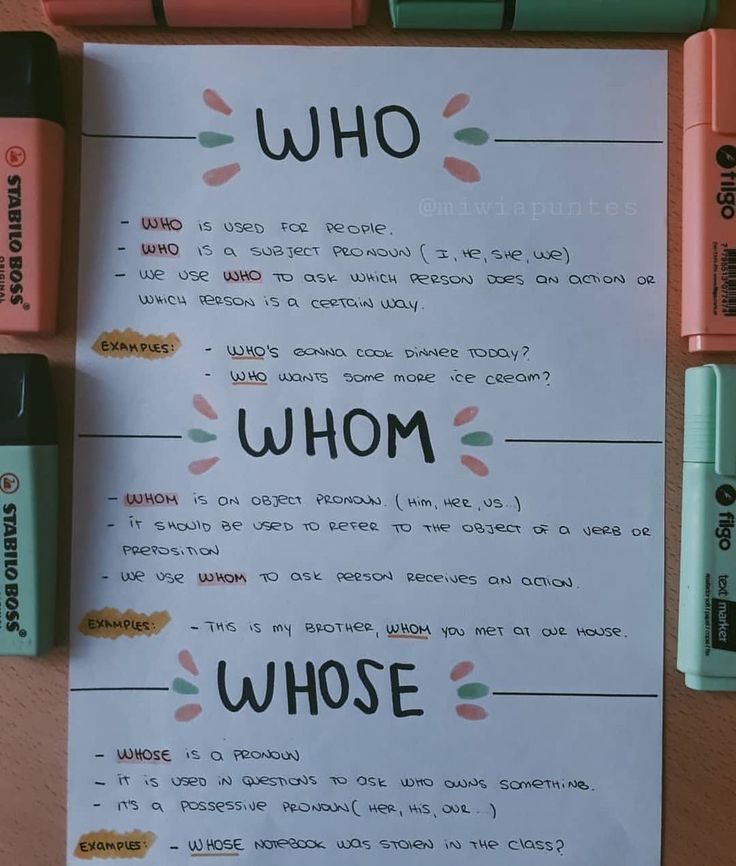 WHO
@miwiapuntes
- WHO is used for people.
- WHO is a subject pronoun ( I, He, She, we)
- we use WHO to ask which person does an action or
which person is a certain way.
EXAMPLES:
- WHO'S gonna cook dinner today?
- WHO wants some more ice cream?
WHOM
- WHOM is an object pronoun. ( Him, Her, us...)
- it should be used to refer to the object of a verb or
preposition
- we use WHOM to ask person receives an action.
EXAMPLES:
- This is my brother, WHOM you met at our house.
WHOSE
- WHOSE is a pronoun
- it is used in questions to ask who owns something.
- it's a possessive pronoun( Her, His, our...)
EXAMPLES:
- WHOSE notebook was stolen in the class?
STABILO BOSS
ORIGINAL
STABILO BOSS
filgo
filgo
text marker